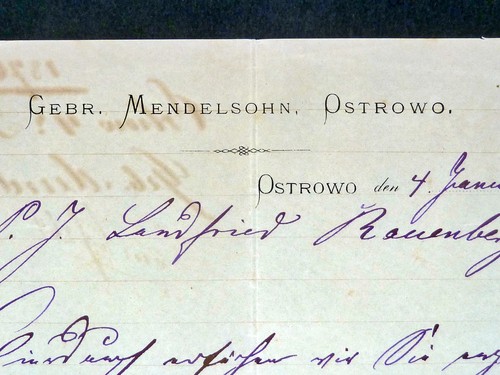 GEBR. MENDELSOHN, OSTROWO.
OSTROWO den 4. Janu
P. J. Landfried Rauenberg
Hierdurch ersuchen wir Sie